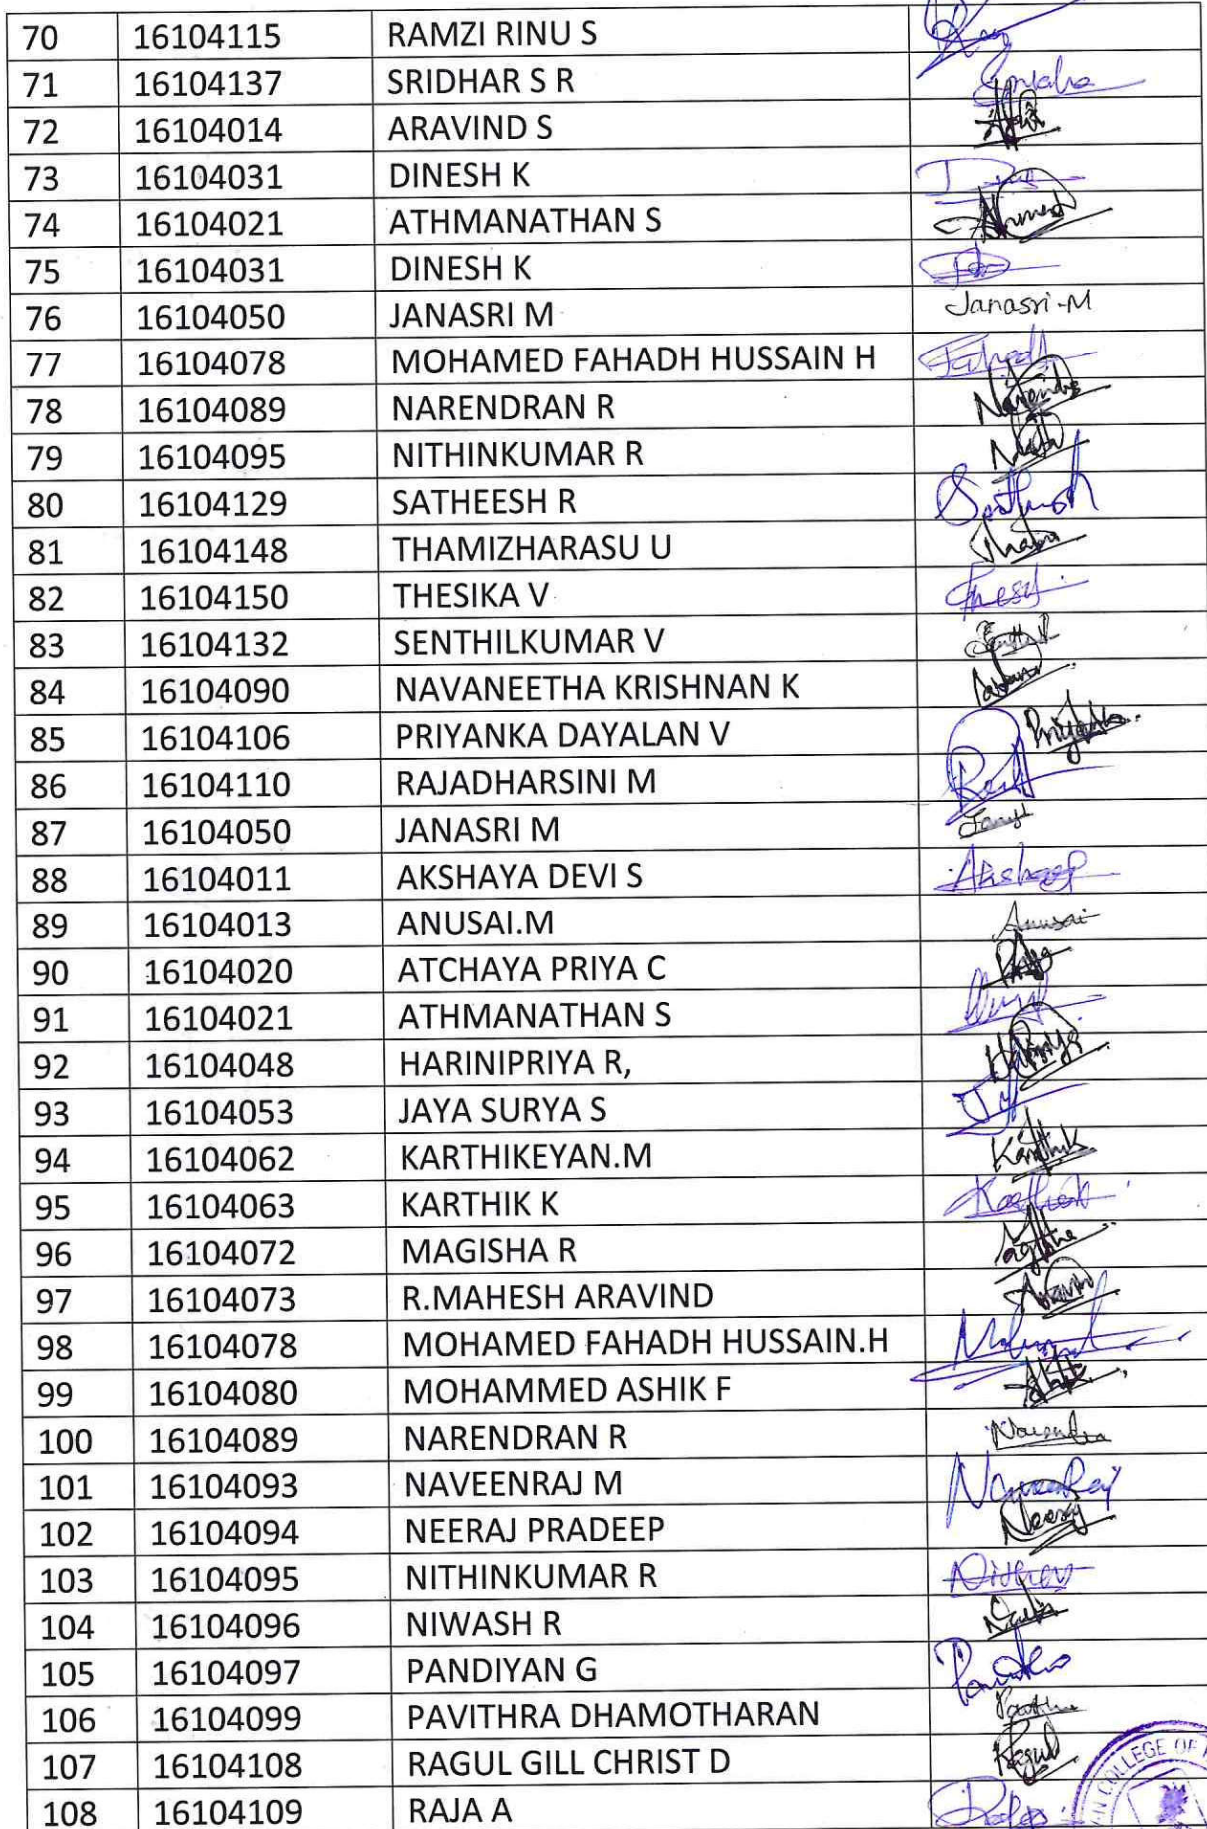 70 16104115 RAMZI RINU S
71 16104137 SRIDHAR S R
72 16104014 ARAVIND S
73 16104031 DINESH K
74 16104021 ATHMANATHAN S Ahmed
75 16104031 DINESH K
76 16104050 JANASRI M Janasri-M
77 16104078 MOHAMED FAHADH HUSSAIN H Fahadh
78 16104089 NARENDRAN R Narendra
79 16104095 NITHINKUMAR R
80 16104129 SATHEESH R
81 16104148 THAMIZHARASU U
82 16104150 THESIKA V
83 16104132 SENTHILKUMAR V
84 16104090 NAVANEETHA KRISHNAN K
85 16104106 PRIYANKA DAYALAN V Priyanka
86 16104110 RAJADHARSINI M
87 16104050 JANASRI M
88 16104011 AKSHAYA DEVI S
89 16104013 ANUSAI.M Anusai
90 16104020 ATCHAYA PRIYA C
91 16104021 ATHMANATHAN S
92 16104048 HARINIPRIYA R,
93 16104053 JAYA SURYA S
94 16104062 KARTHIKEYAN.M Karthik
95 16104063 KARTHIK K
96 16104072 MAGISHA R
97 16104073 R.MAHESH ARAVIND
98 16104078 MOHAMED FAHADH HUSSAIN.H
99 16104080 MOHAMMED ASHIK F
100 16104089 NARENDRAN R Narendra
101 16104093 NAVEENRAJ M NaveenRaj
102 16104094 NEERAJ PRADEEP Neeraj
103 16104095 NITHINKUMAR R
104 16104096 NIWASH R
105 16104097 PANDIYAN G
106 16104099 PAVITHRA DHAMOTHARAN
107 16104108 RAGUL GILL CHRIST D Ragul
108 16104109 RAJA A
COLLEGE OF